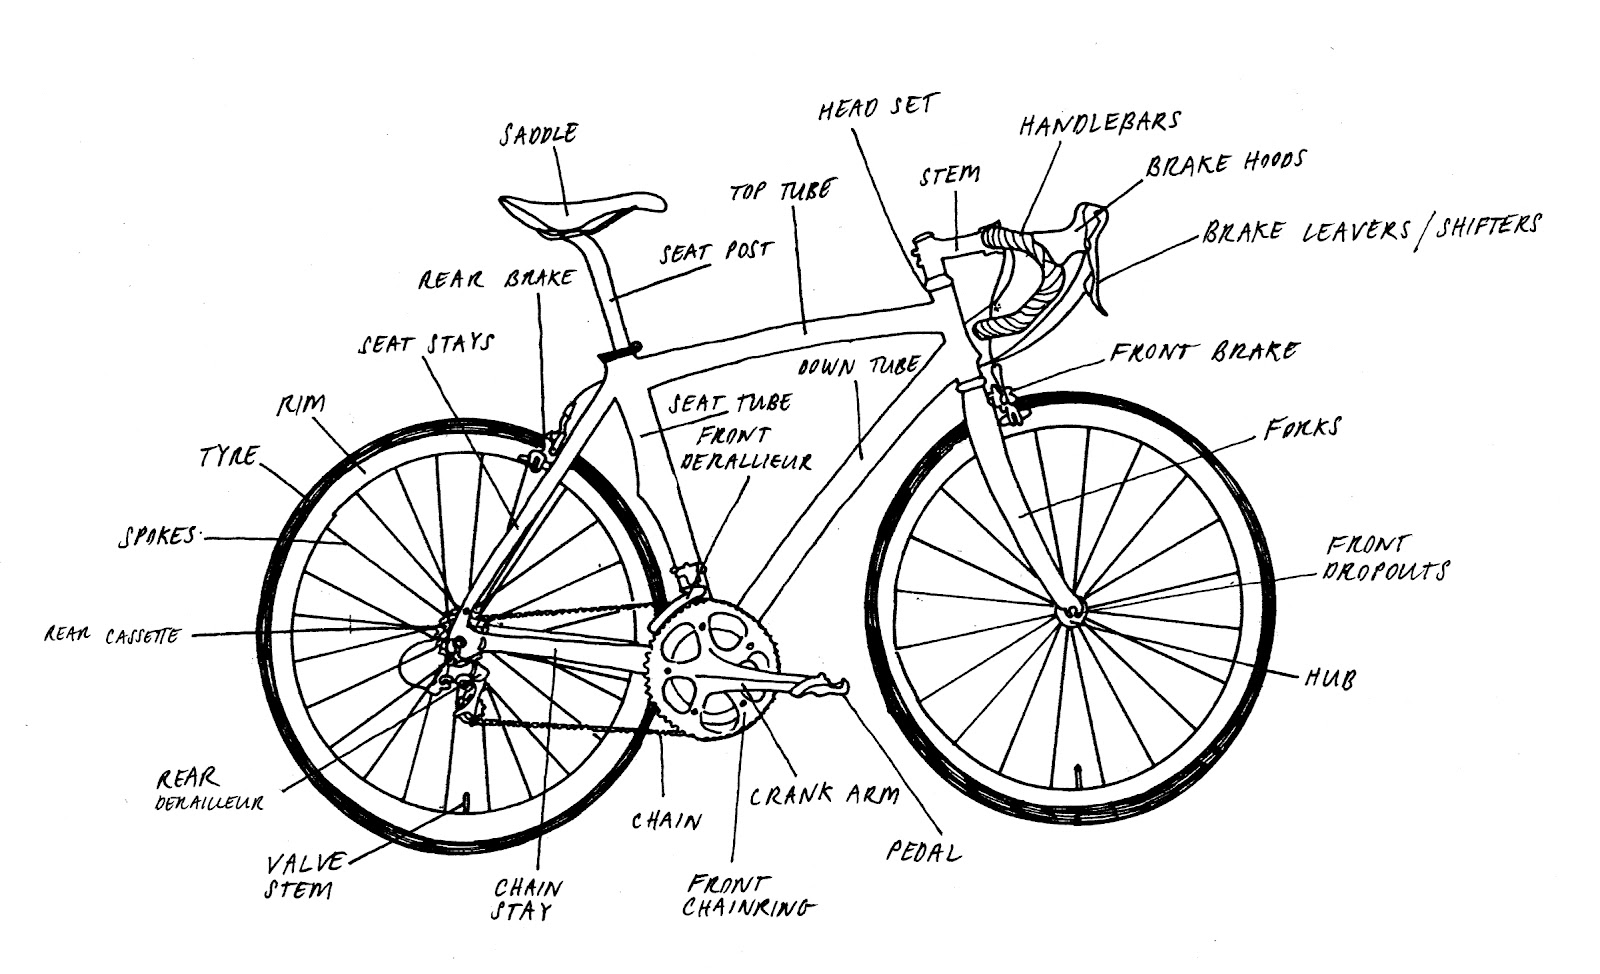 HEAD SET
HANDLEBARS
SADDLE
BRAKE HOODS
STEM
TOP TUBE
BRAKE LEAVERS/SHIFTERS
SEAT POST
REAR BRAKE
SEAT STAYS
FRONT BRAKE
DOWN TUBE
RIM
SEAT TUBE
FORKS
FRONT
DERALLIEUR
TYRE
SPOKES
FRONT
DROPOUTS
REAR CASSETTE
HUB
REAR
DERAILLEUR
CRANK ARM
CHAIN
PEDAL
VALVE
STEM
CHAIN
STAY
FRONT
CHAINRING